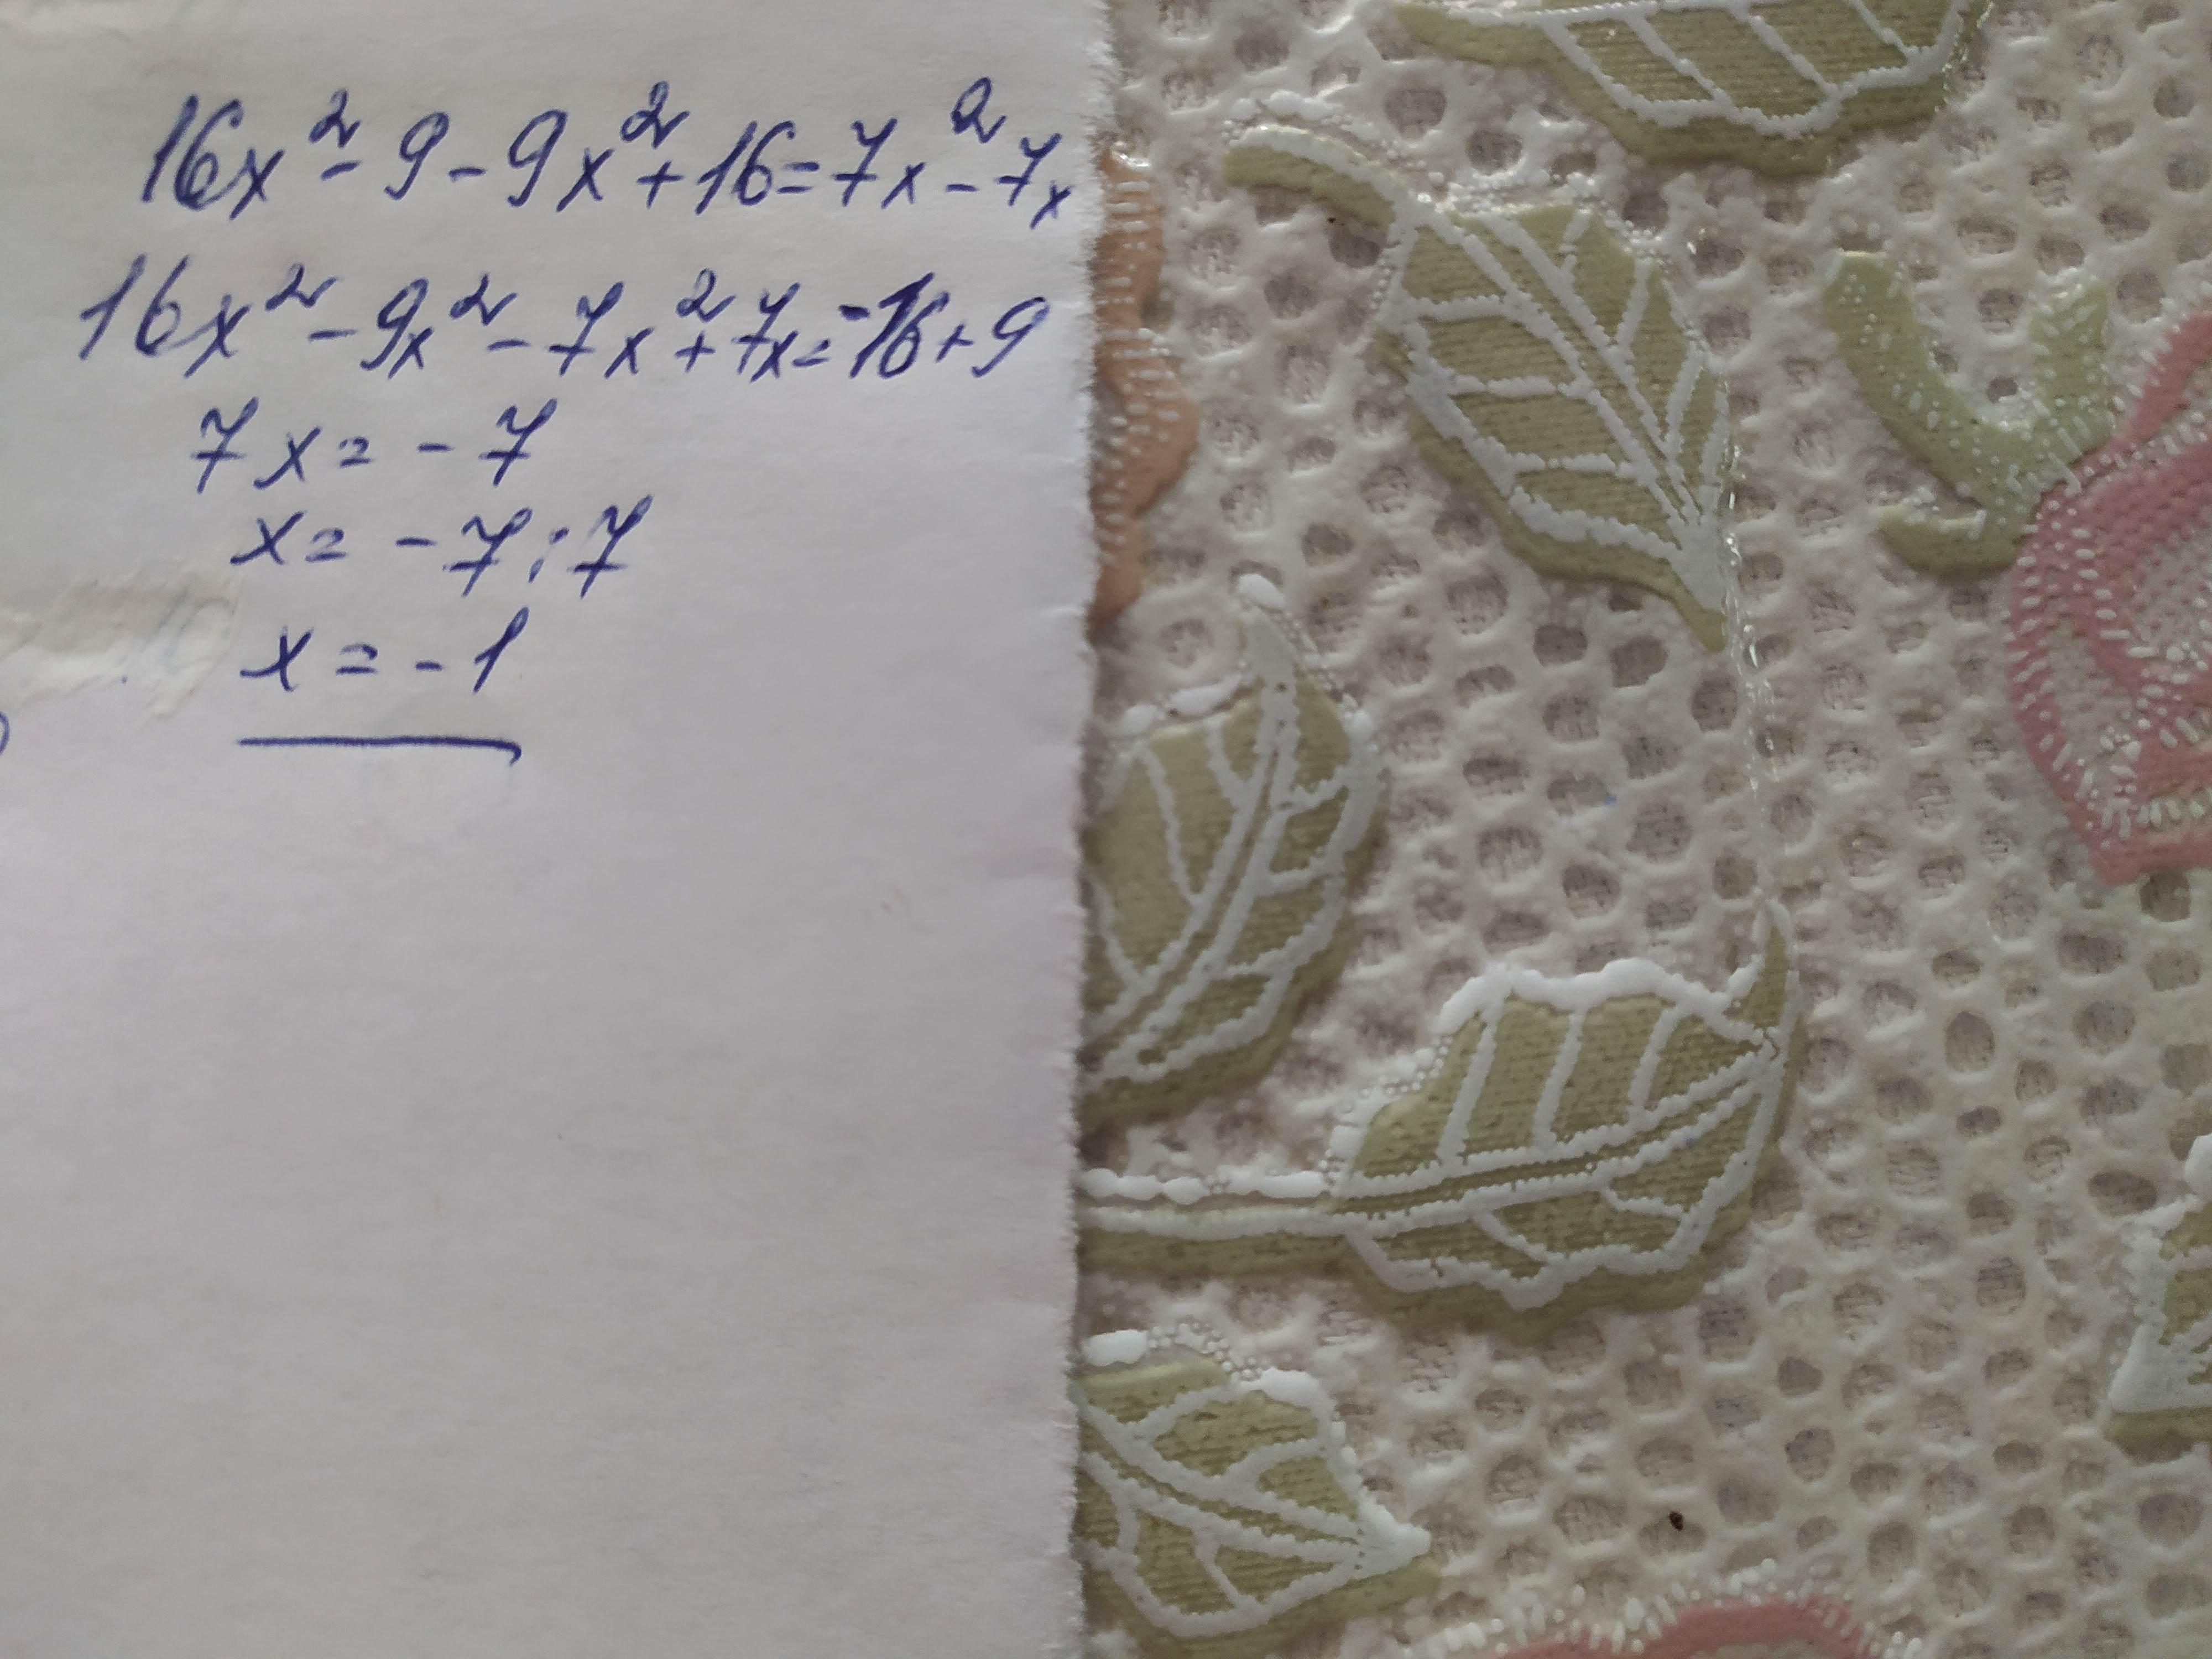 16x² - 9 - 9x² + 16 = 7x² - 7x
16x² - 9x² - 7x² + 7x = -16 + 9
7x = -7
x = -7 : 7
x = -1